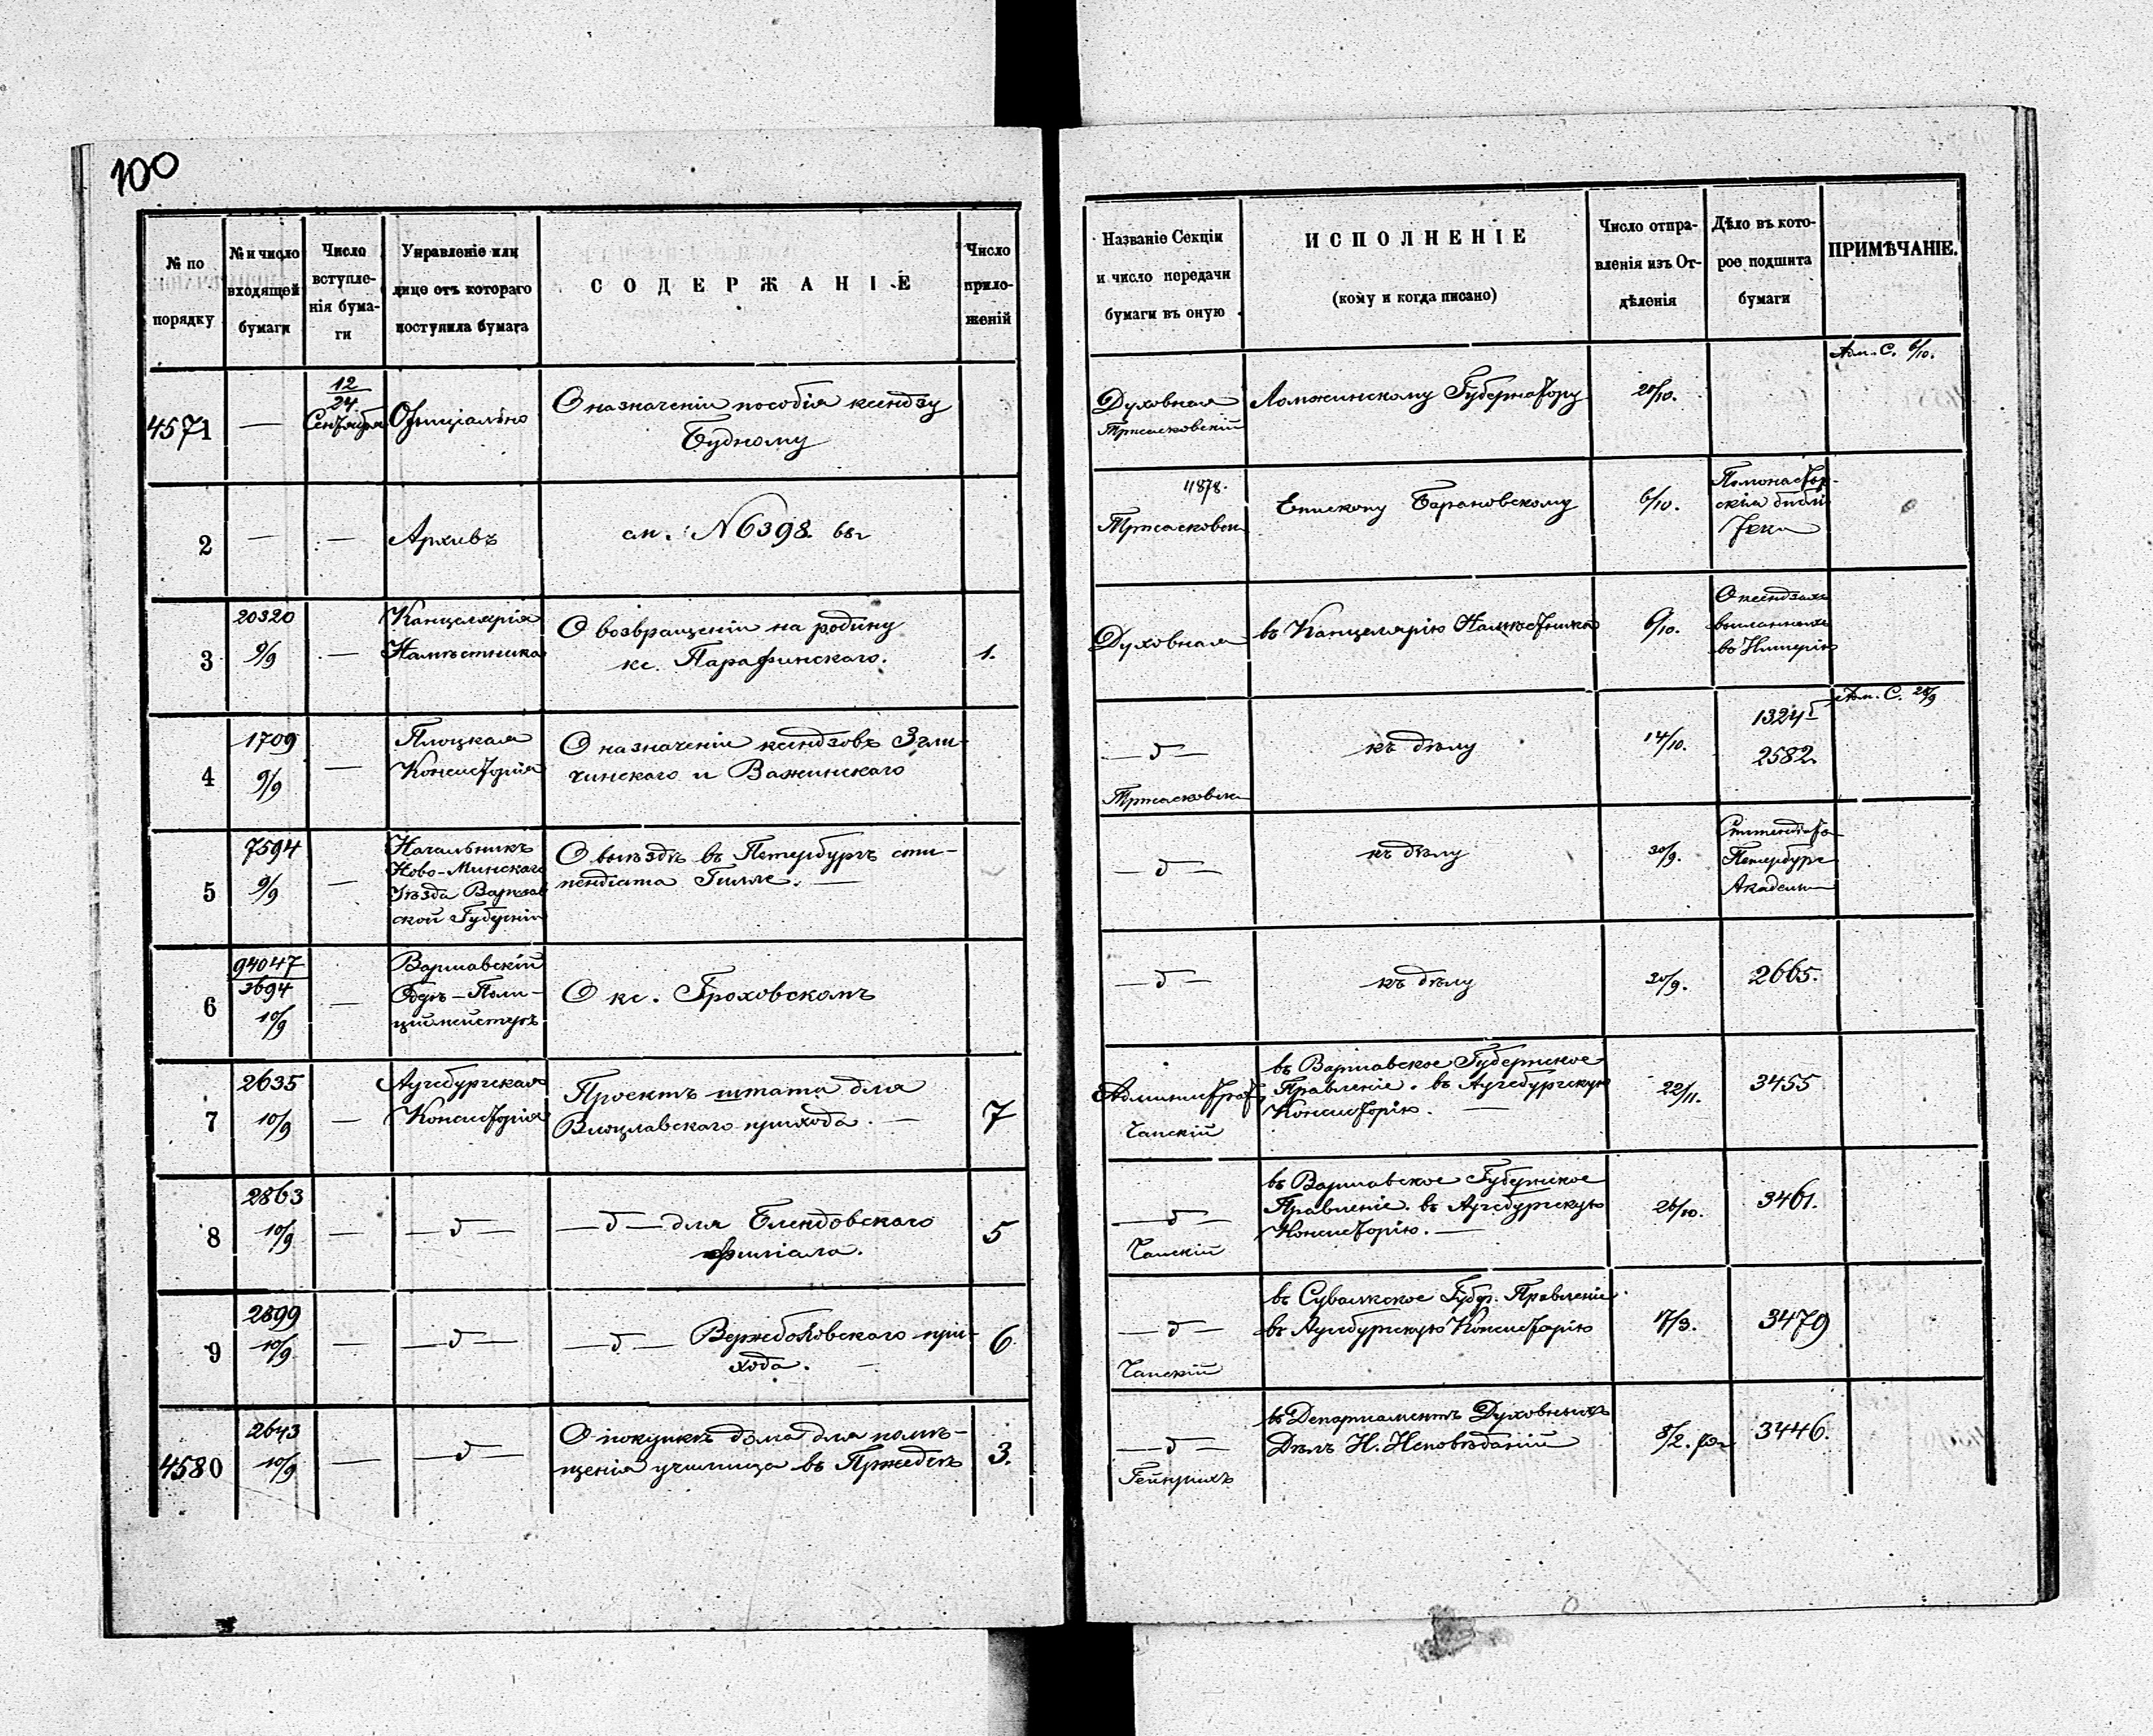 100
№ по порядку
№ и число входящей бумаги
Число вступле-
нія бума-
ги
Управленіе или
лице отъ котораго
поступила бумага
СОДЕРЖАНІЕ
Число
прило-
женій
Названіе Секціи
и число передачи
бумаги въ оную
ИСПОЛНЕНІЕ
(кому и когда писано)
Число отпра-
вленія изъ От-
дѣленія
Дѣло въ кото-
рое подшита
бумаги
ПРИМѢЧАНІЕ.
4571
—
12/24
Сентября
Офиціально
О назначеніи пособія ксендзу
Будному
Духовная
Ломжинскому Губернатору
Адм. С. 6/10.
2
—
—
Архивъ
см. N 6398.
4878.
Епископу Барановскому
6/10.
3
20320
9/9
—
Канцелярія
Намѣстника
О возвращеніи на родину
кс. Парафинскаго.
1.
Духовная
въ Канцелярію Намѣстника
6/10.
О ксендзахъ
высланныхъ
въ Имперію
4
1709
9/9
—
Плоцкая
Консисторія
О назначеніи ксендзовъ Згли-
чинскаго и Важинскаго
— д —
къ дѣлу
14/10.
1324
2582.
Адм. С.
5
7594
9/9
—
Начальникъ
Ново-Минскаго
Уѣзда Варшав
ской Губерніи
О выѣздѣ въ Петербургъ сти-
пендіата Гилле. —
— д —
къ дѣлу
30/9.
Петербург
Академіи
6
94047
3694
10/9
—
Варшавскій
Оберъ-Поли-
ціймейстеръ
О кс. Гроховскомъ
— д —
къ дѣлу
30/9.
2665.
7
2635
10/9
—
Аугсбургская
Консисторія
Проектъ штата для
Влоцлавскаго прихода. —
7
Чапскій
въ Варшавское Губернское
Правленіе. въ Аугсбургскую
Консисторію. —
22/11.
3455
8
2863
10/9
—
— д —
— д — для Блендовскаго
филіала.
5
— д —
Чапскій
въ Варшавское Губернское
Правленіе. въ Аугсбургскую
Консисторію. —
26/10.
3461.
9
2899
10/9
—
— д —
— д — Вержболовскаго при-
хода. —
6
— д —
Чапскій
въ Сувалкское Губер. Правленіе.
въ Аугсбургскую Консисторію
17/3.
3479
4580
2643
10/9
—
— д —
О покупкѣ дома для помѣ-
щенія училища въ Пржедечѣ
3.
— д —
Гейнрихъ
въ Департаментъ Духовныхъ
Дѣлъ И. Исповѣданій
8/2.
3446.